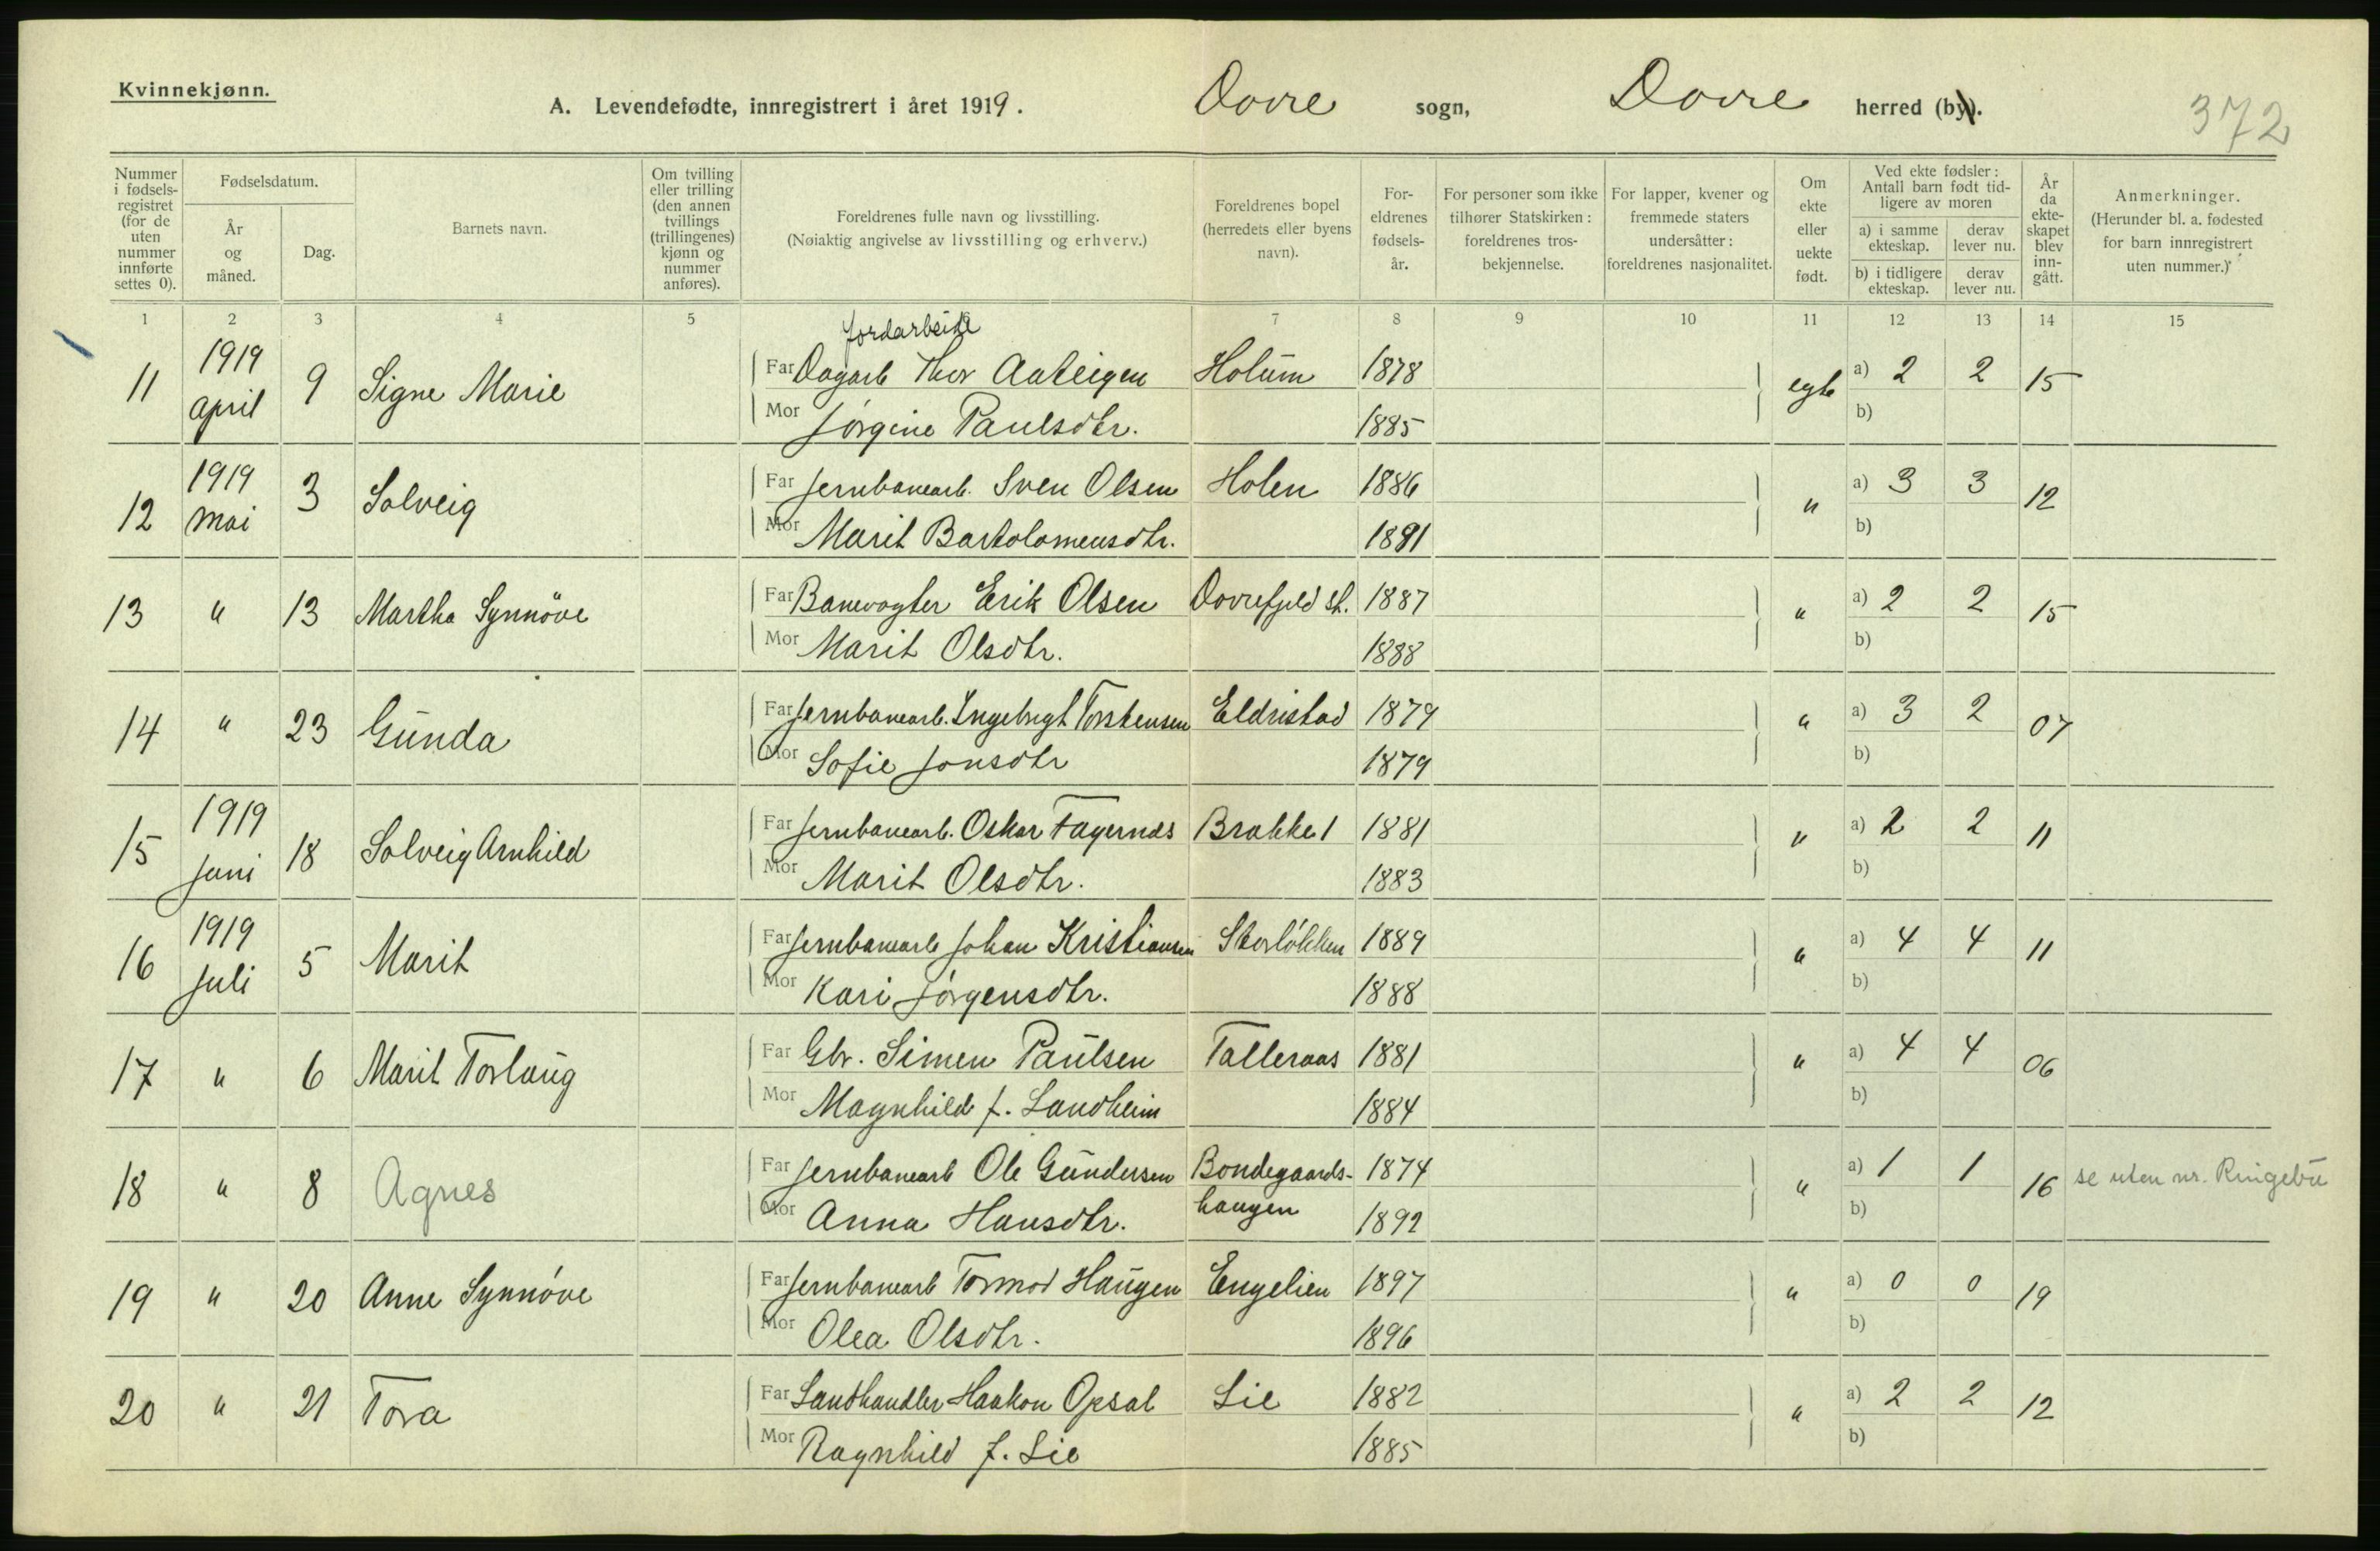 Kvinnekjønn.
A. Levendefødte, innregistrert i året 1919. Dovre sogn, Dovre herred (by).
372
Nummer i fødselsregistret (for de uten nummer innførte settes 0).
Fødselsdatum.
År og måned.
Dag.
Barnets navn.
Om tvilling eller trilling (den annen tvillings (trillingenes) kjønn og nummer anføres).
Foreldrenes fulle navn og livsstilling.
(Nøiaktig angivelse av livsstilling og erhverv.)
Foreldrenes bopel (herredets eller byens navn).
For-eldrenes fødsels-år.
For personer som ikke tilhører Statskirken: foreldrenes tros-bekjennelse.
For lapper, kvener og fremmede staters undersåtter: foreldrenes nasjonalitet.
Om ekte eller uekte født.
Ved ekte fødsler: Antall barn født tid-ligere av moren
a) i samme ekteskap. derav lever nu.
b) i tidligere ekteskap. derav lever nu.
År da ekte-skapet blev inn-gått.
Anmerkninger.
(Herunder bl. a. fødested for barn innregistrert uten nummer.)
1 2 3 4 5 6 7 8 9 10 11 12 13 14 15
Jordarbeide
11 1919 april 9 Signe Marie Far Dagarb Thor Aateigen Holum 1878 egte a) 2 2 15
Mor Jörgine Paulsdtr. 1885 b)
12 1919 mai 3 Solveig Far Jernbanearb. Sven Olsen Holen 1886 " a) 3 3 12
Mor Marit Bartolomeusdtr. 1891 b)
13 " 13 Martha Synnöve Far Banevogter Erik Olsen Dovrefjeld st. 1887 " a) 2 2 15
Mor Marit Olsdtr. 1888 b)
14 " 23 Gunda Far Jernbanearb. Ingebrigt Torstensen Eldristad 1879 " a) 3 2 07
Mor Sofie Jonsdtr 1879 b)
15 1919 juni 18 Solveig Arnhild Far Jernbanearb. Oskar Fagernæs Brakke 1 1881 " a) 2 2 11
Mor Marit Olsdtr. 1883 b)
16 1919 juli 5 Marit Far Jernbanearb Johan Kristiansen Storlökken 1889 " a) 4 4 11
Mor Kari Jörgensdtr. 1888 b)
17 " 6 Marit Torlaug Far Gbr. Simen Paulsen Talleraas 1881 " a) 4 4 06
Mor Magnhild f. Landheim 1884 b)
18 " 8 Agnes Far Jernbanearb Ole Gundersen Bondegaards- 1874 " a) 1 1 16 se uten nr. Ringebu
Mor Anna Hansdtr. haugen 1892 b)
19 " 20 Anne Synnöve Far Jernbanearb Tormod Haugen Engelien 1897 " a) 0 0 19
Mor Olea Olsdtr. 1896 b)
20 " 21 Tora Far Landhandler Haakon Opsal Lie 1882 " a) 2 2 12
Mor Ragnhild f. Lie 1885 b)